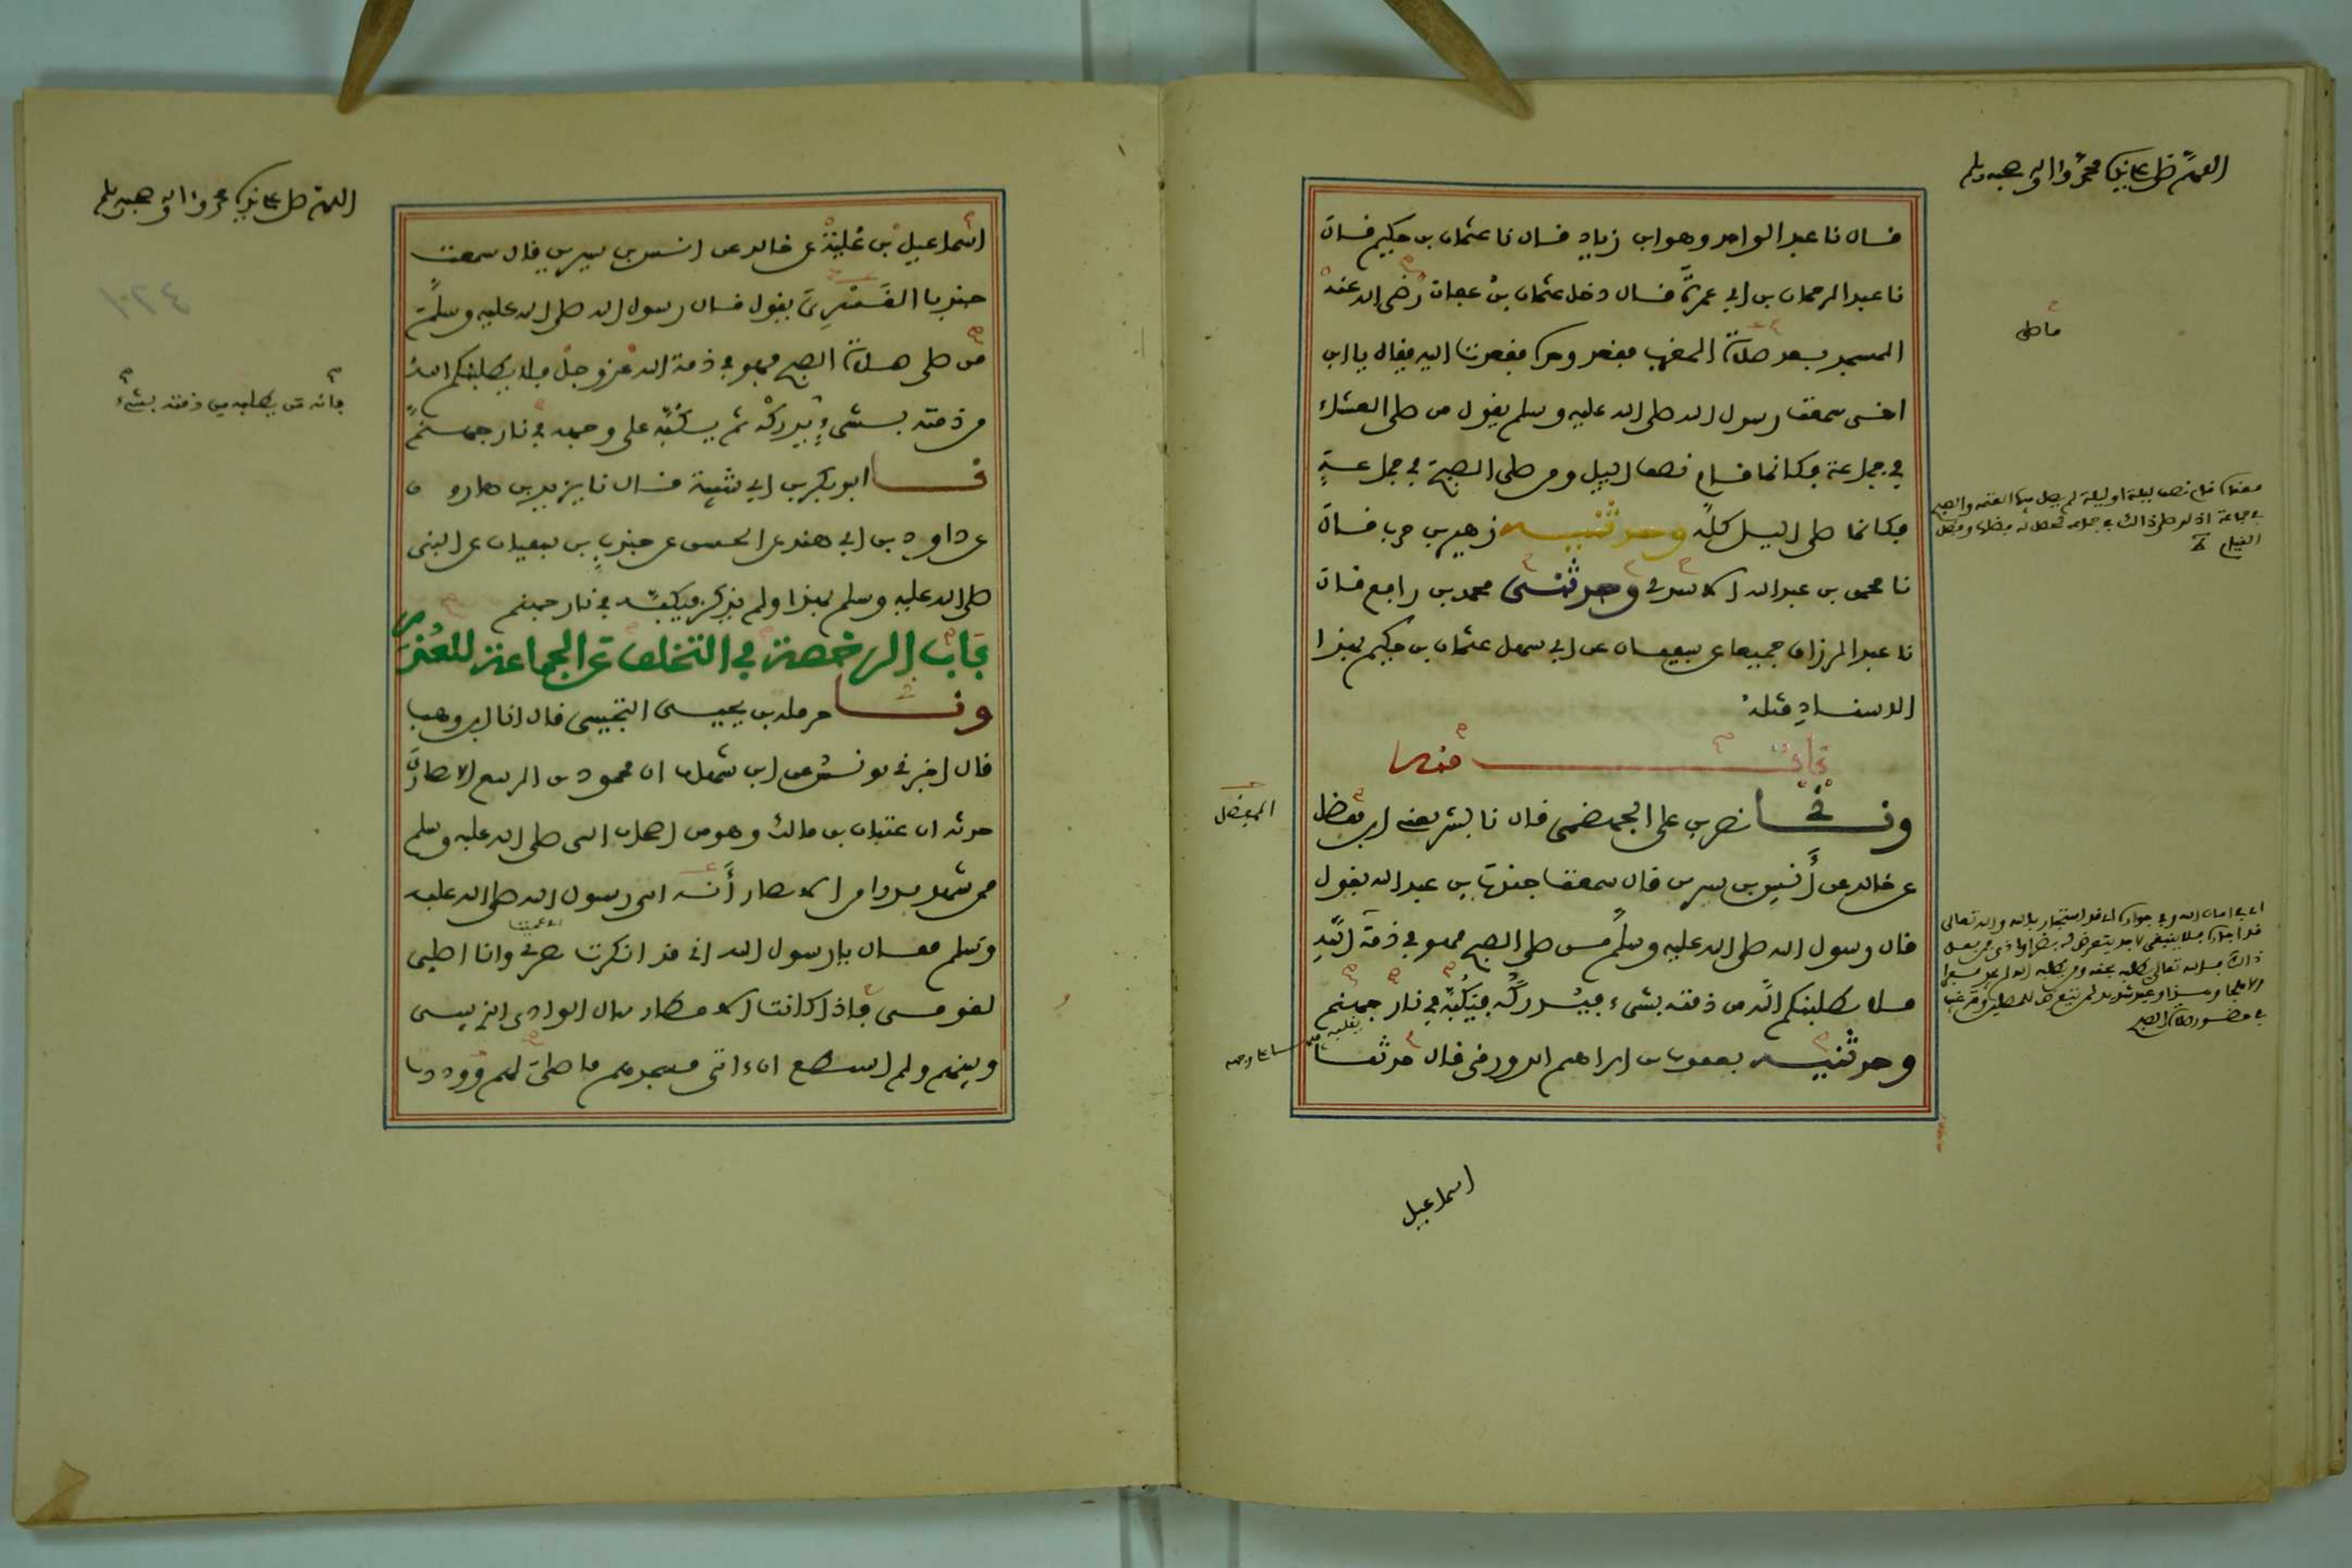 اللهم صل على نبيك محمد وآله وصحبه وسلم
قال نا عبد الواحد وهو ابن زياد قال نا عثمان بن حكيم قال
نا عبد الرحمان بن ابي عمرة قال دخل عثمان بن عفان رضي الله عنه
المسجد بعد صلاة المغرب فقعد وحده فقعدت اليه فقال يا ابن
اخي سمعت رسول الله صلى الله عليه وسلم يقول من صلى العشاء
في جماعة فكانما قام نصف الليل ومن صلى الصبح في جماعة
فكانما صلى الليل كله وحدثنيه زهير بن حرب قال
نا محمد بن عبد الله الاسدي وحدثني محمد بن رافع قال
نا عبد الرزاق جميعا عن سفيان عن ابي سهل عثمان بن حكيم بهذا
الاسناد مثله
باب منه
ونا نصر بن علي الجهضمي قال نا بشر يعني ابن مفضل
عن خالد عن أنس بن سيرين قال سمعت جندب بن عبد الله يقول
قال رسول الله صلى الله عليه وسلم من صلى الصبح فهو في ذمة الله
فلا يطلبنكم الله من ذمته بشيء فيدركه فيكبه في نار جهنم
وحدثنيه يعقوب بن ابراهيم الدورقي قال حدثنا
المفضل
اسماعيل
اللهم صل على نبيك محمد وآله وصحبه وسلم
اسماعيل بن علية عن خالد عن انس بن سيرين قال سمعت
جندبا القسري يقول قال رسول الله صلى الله عليه وسلم
من صلى صلاة الصبح فهو في ذمة الله عز وجل فلا يطلبنكم الله
من ذمته بشيء يدركه ثم يكبه على وجهه في نار جهنم
فانه من يطلبه من ذمته بشيء
نا ابو بكر بن ابي شيبة قال نا يزيد بن هارون
عن داود بن ابي هند عن الحسن عن جندب بن سفيان عن النبي
صلى الله عليه وسلم بهذا ولم يذكر فيكبه في نار جهنم
باب الرخصة في التخلف عن الجماعة للعذر
ونا حرملة بن يحيى التجيبي قال انا ابن وهب
قال اخبرني يونس عن ابن شهاب ان محمود بن الربيع الانصاري
حدثه ان عتبان بن مالك وهو من اصحاب النبي صلى الله عليه وسلم
ممن شهد بدرا من الانصار أنه اتى رسول الله صلى الله عليه
وسلم فقال يا رسول الله اني قد انكرت بصري وانا اصلي
لقومي فاذا كانت الامطار سال الوادي الذي بيني
وبينهم ولم استطع ان ءاتي مسجدهم فاصلي لهم وددت